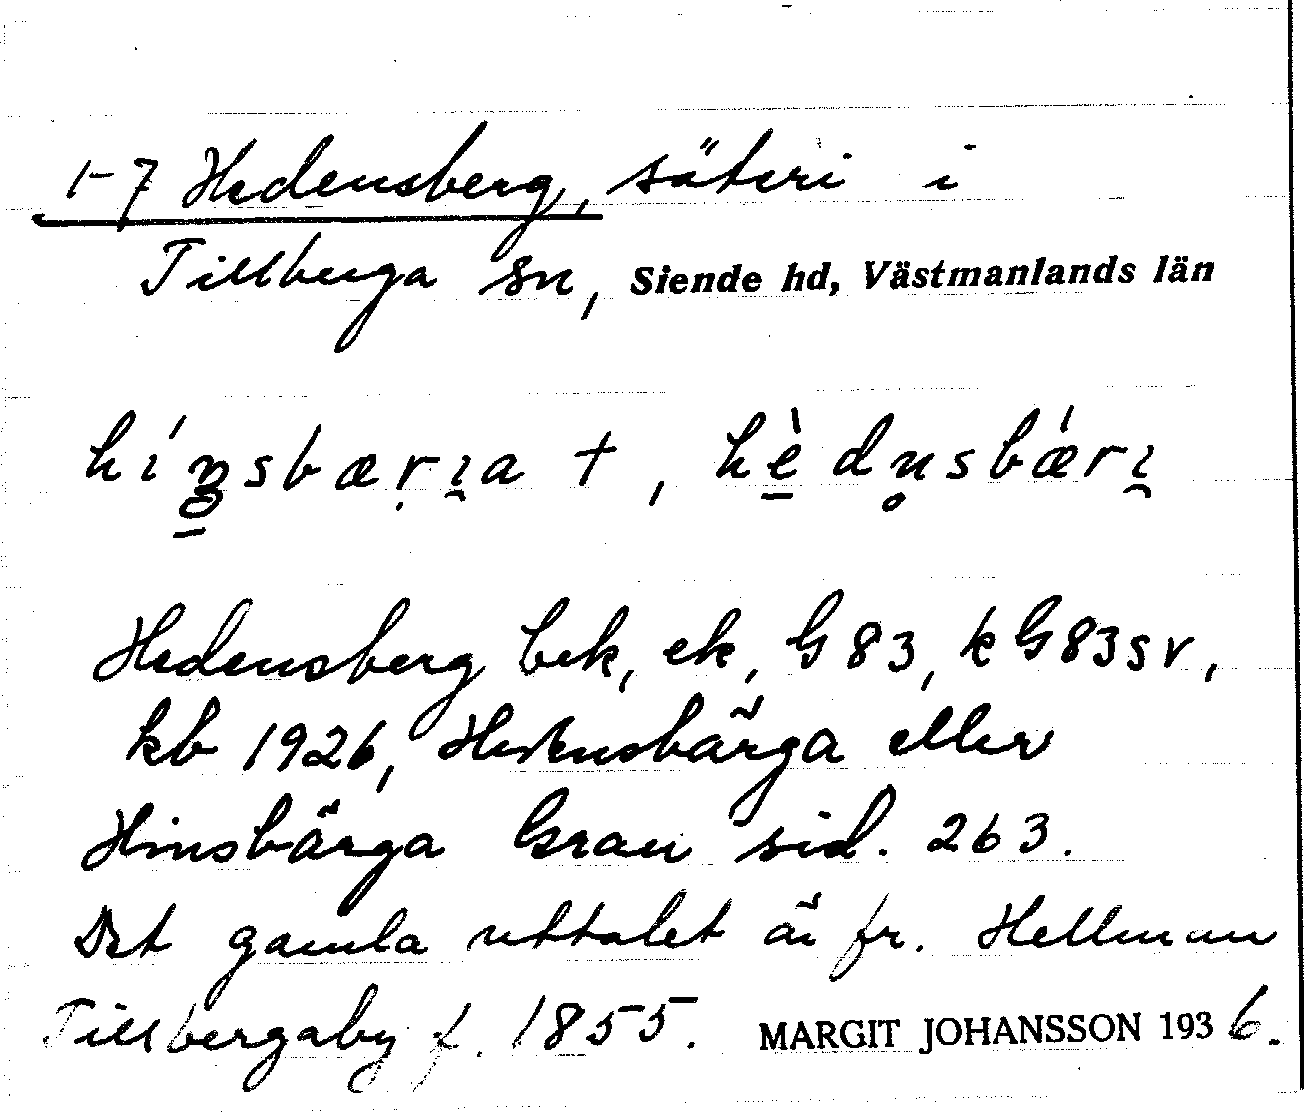 1-7 Hedensberg, säteri i
Tillberga sn, Siende hd, Västmanlands län
hí sbær̥i̯a †, hèdn̥sbǽri̯
Hedensberg bek, ek, G 83, k G83sv,
kb 1926, Hedensbärga eller
Hinsbärga Grau sid. 263.
Det gamla uttalet är fr. Hellman
Tillbergaby f. 1855. MARGIT JOHANSSON 1936.